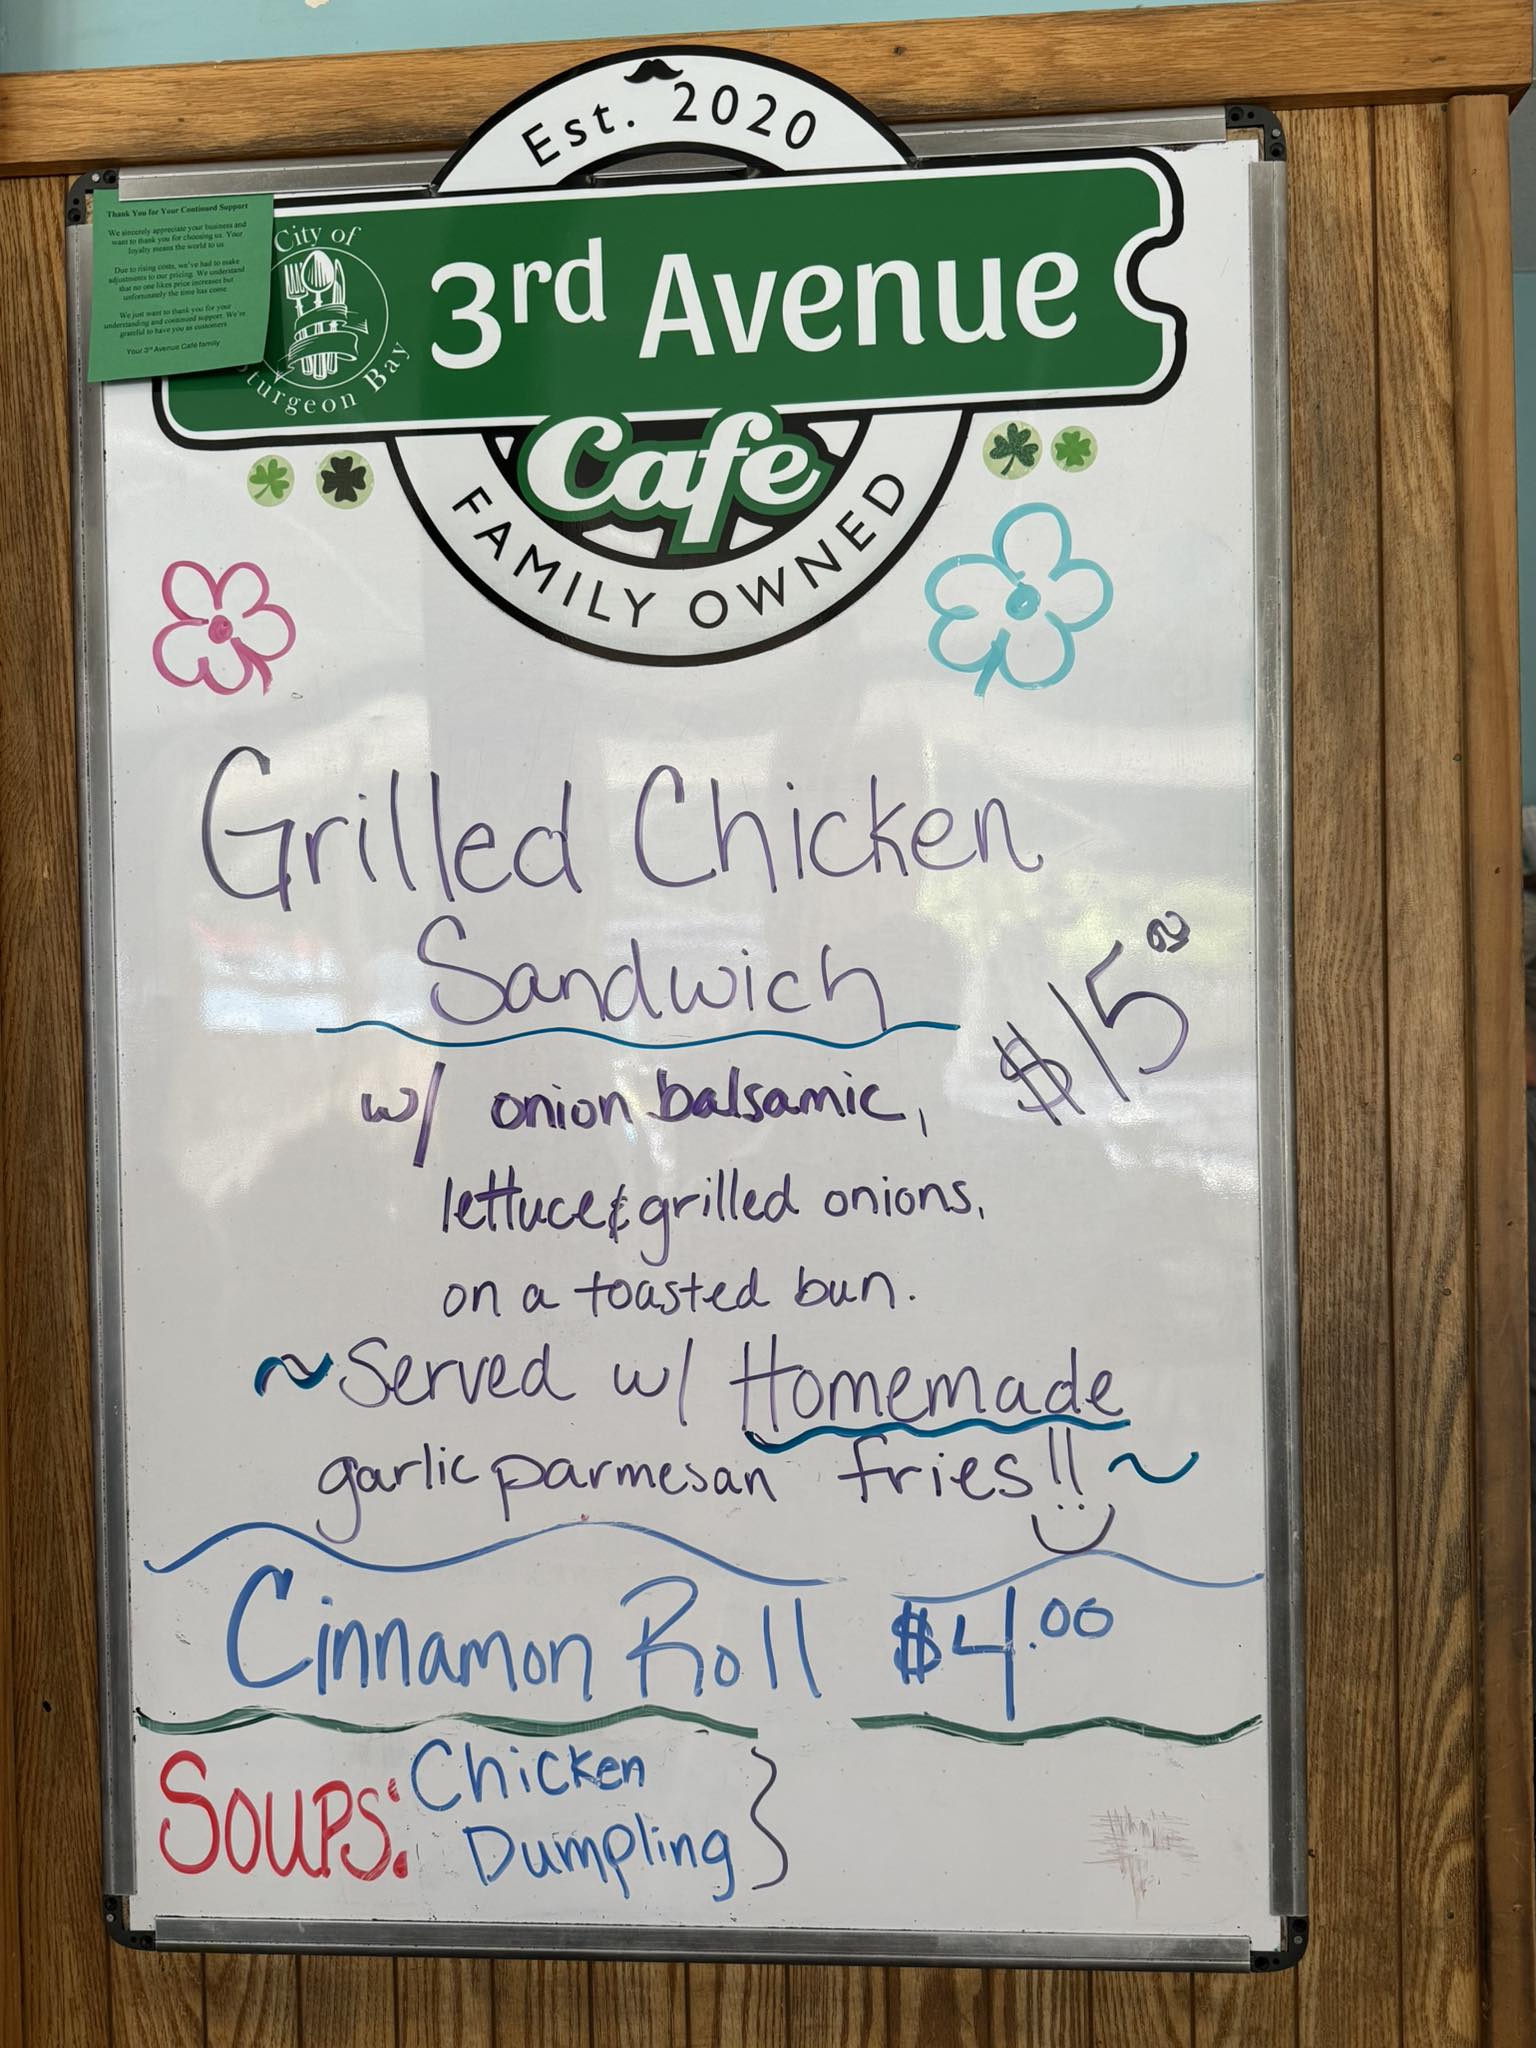 Est. 2020
Thank You for Your Continued Support
We sincerely appreciate your business and
want to thank you for choosing us. Your
loyalty means the world to us
Due to rising costs, we've had to make
adjustments to our pricing. We understand
that no one likes price increases but
unfortunately the time has come
We just want to thank you for your
understanding and continued support. We're
grateful to have you as customers
Your 3rd Avenue Café family
City of
Sturgeon Bay
3rd Avenue
Cafe
FAMILY OWNED
Grilled Chicken
Sandwich
$15
w/ onion balsamic,
lettuce & grilled onions,
on a toasted bun.
~Served w/ Homemade
garlic parmesan fries!! ~
Cinnamon Roll $4.00
SOUPS: Chicken
Dumpling